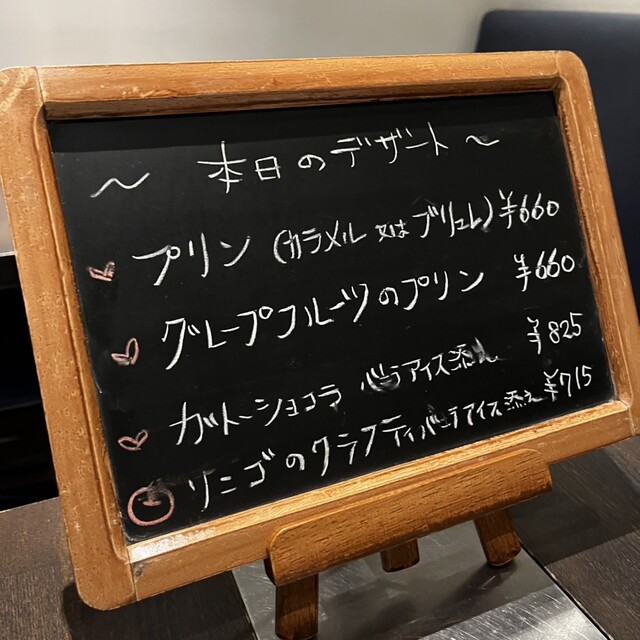 ～ 本日のデザート ～
プリン (カラメル 又は ブリュレ) ¥660
グレープフルーツのプリン ¥660
ガトーショコラ バニラアイス添え ¥825
リンゴのクラフティバニラアイス添え ¥715